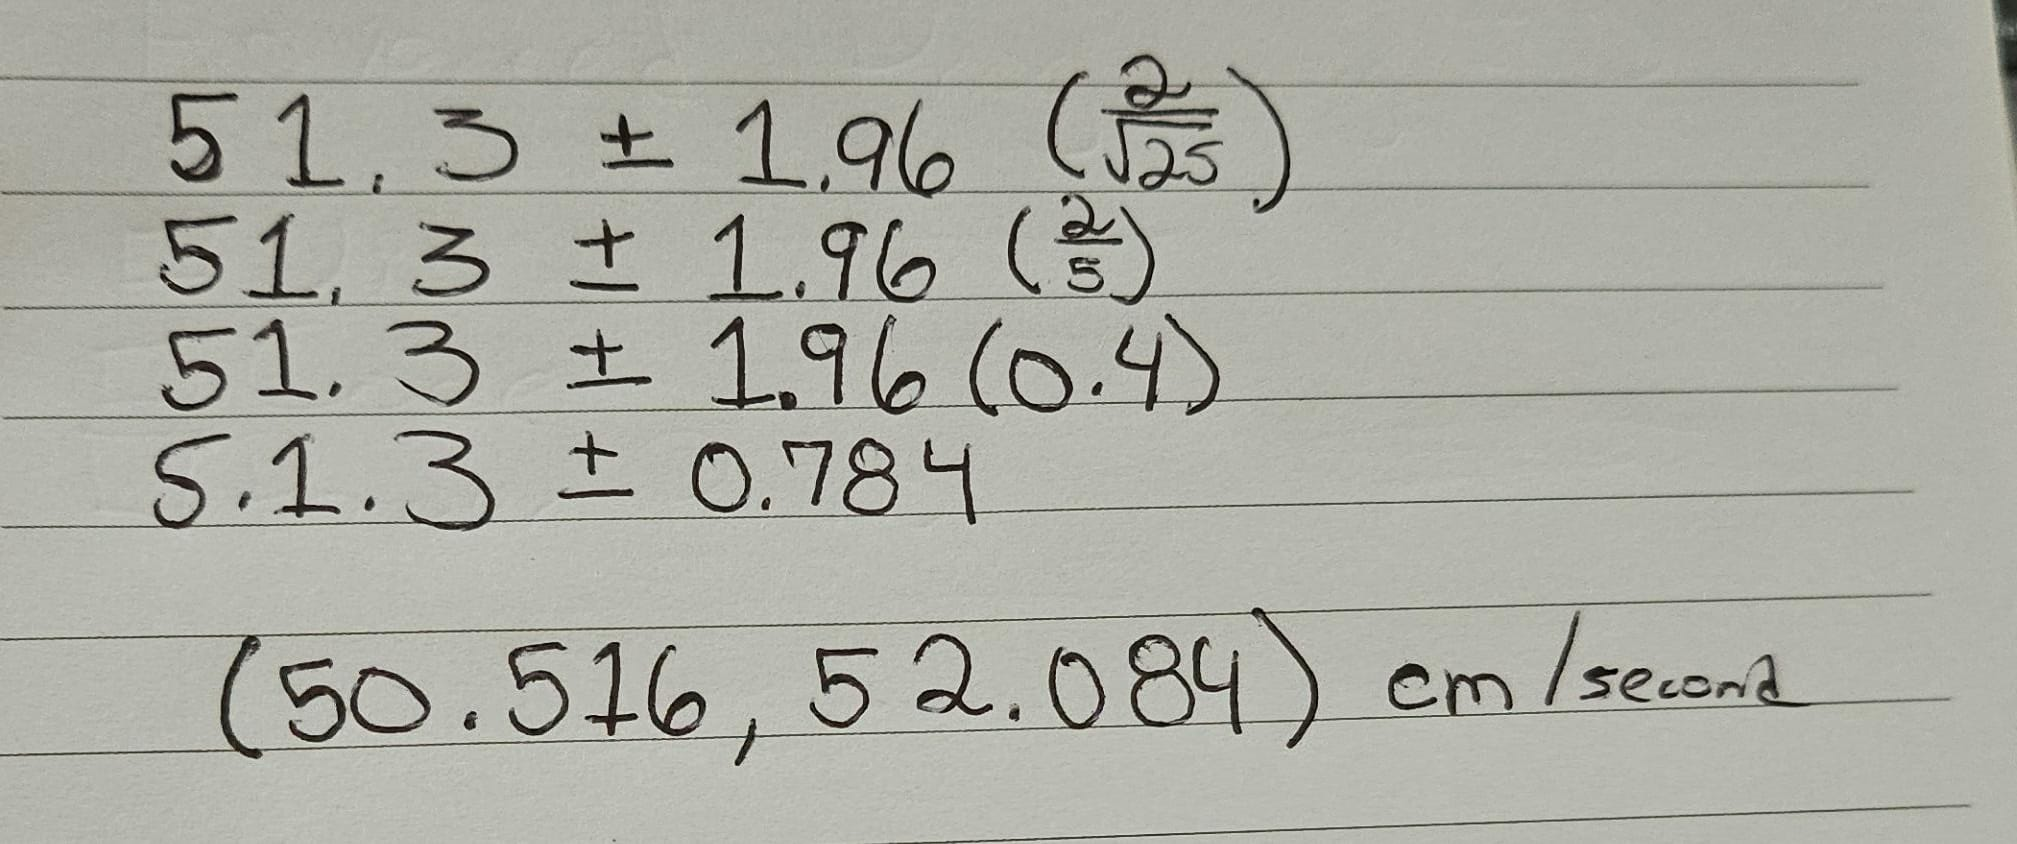 51.3 ± 1.96 (2/√25)
51.3 ± 1.96 (2/5)
51.3 ± 1.96 (0.4)
5.1.3 ± 0.784
(50.516, 52.084) cm/second